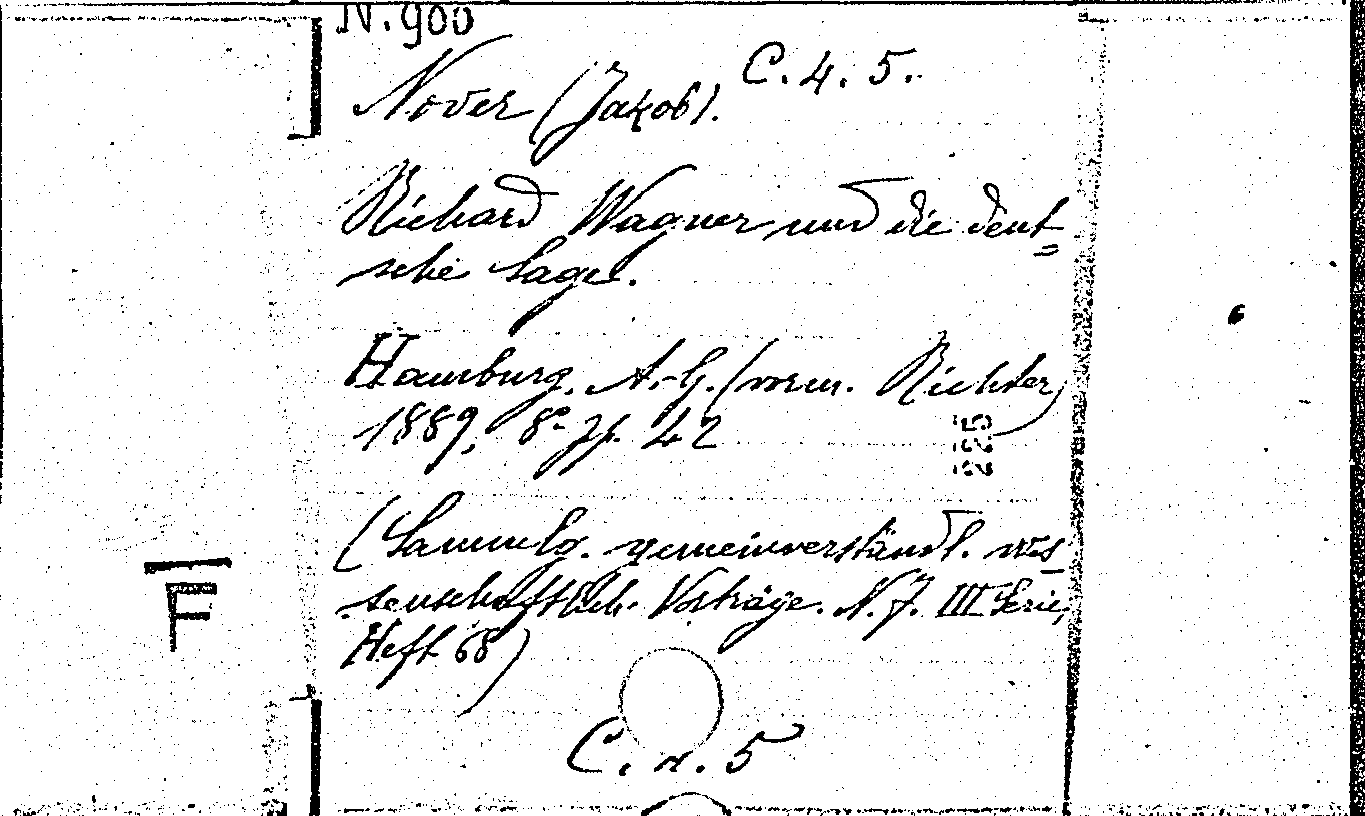 N. 900
C. 4. 5.
Nover (Jakob).
Richard Wagner und die deut=
sche Sage.
Hamburg, A.-G. (vorm. Richter)
1889, 8º pp. 42
225
(Sammlg. gemeinverständl. wis=
senschaftlich. Vorträge. N. F. III Serie,
Heft 68)
F
C. n. 5